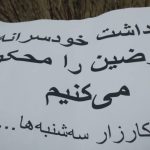 داشت خودسرانه
ضین را محکو
می‌کنیم
کارزار سه‌شنبه‌ها...